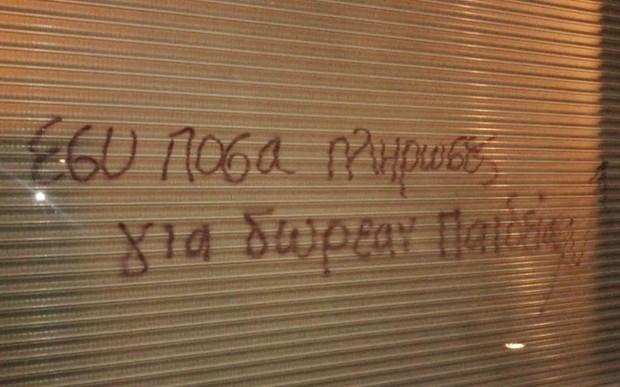 εσυ ποσα πληρωσες
για δωρεαν Παιδεία;